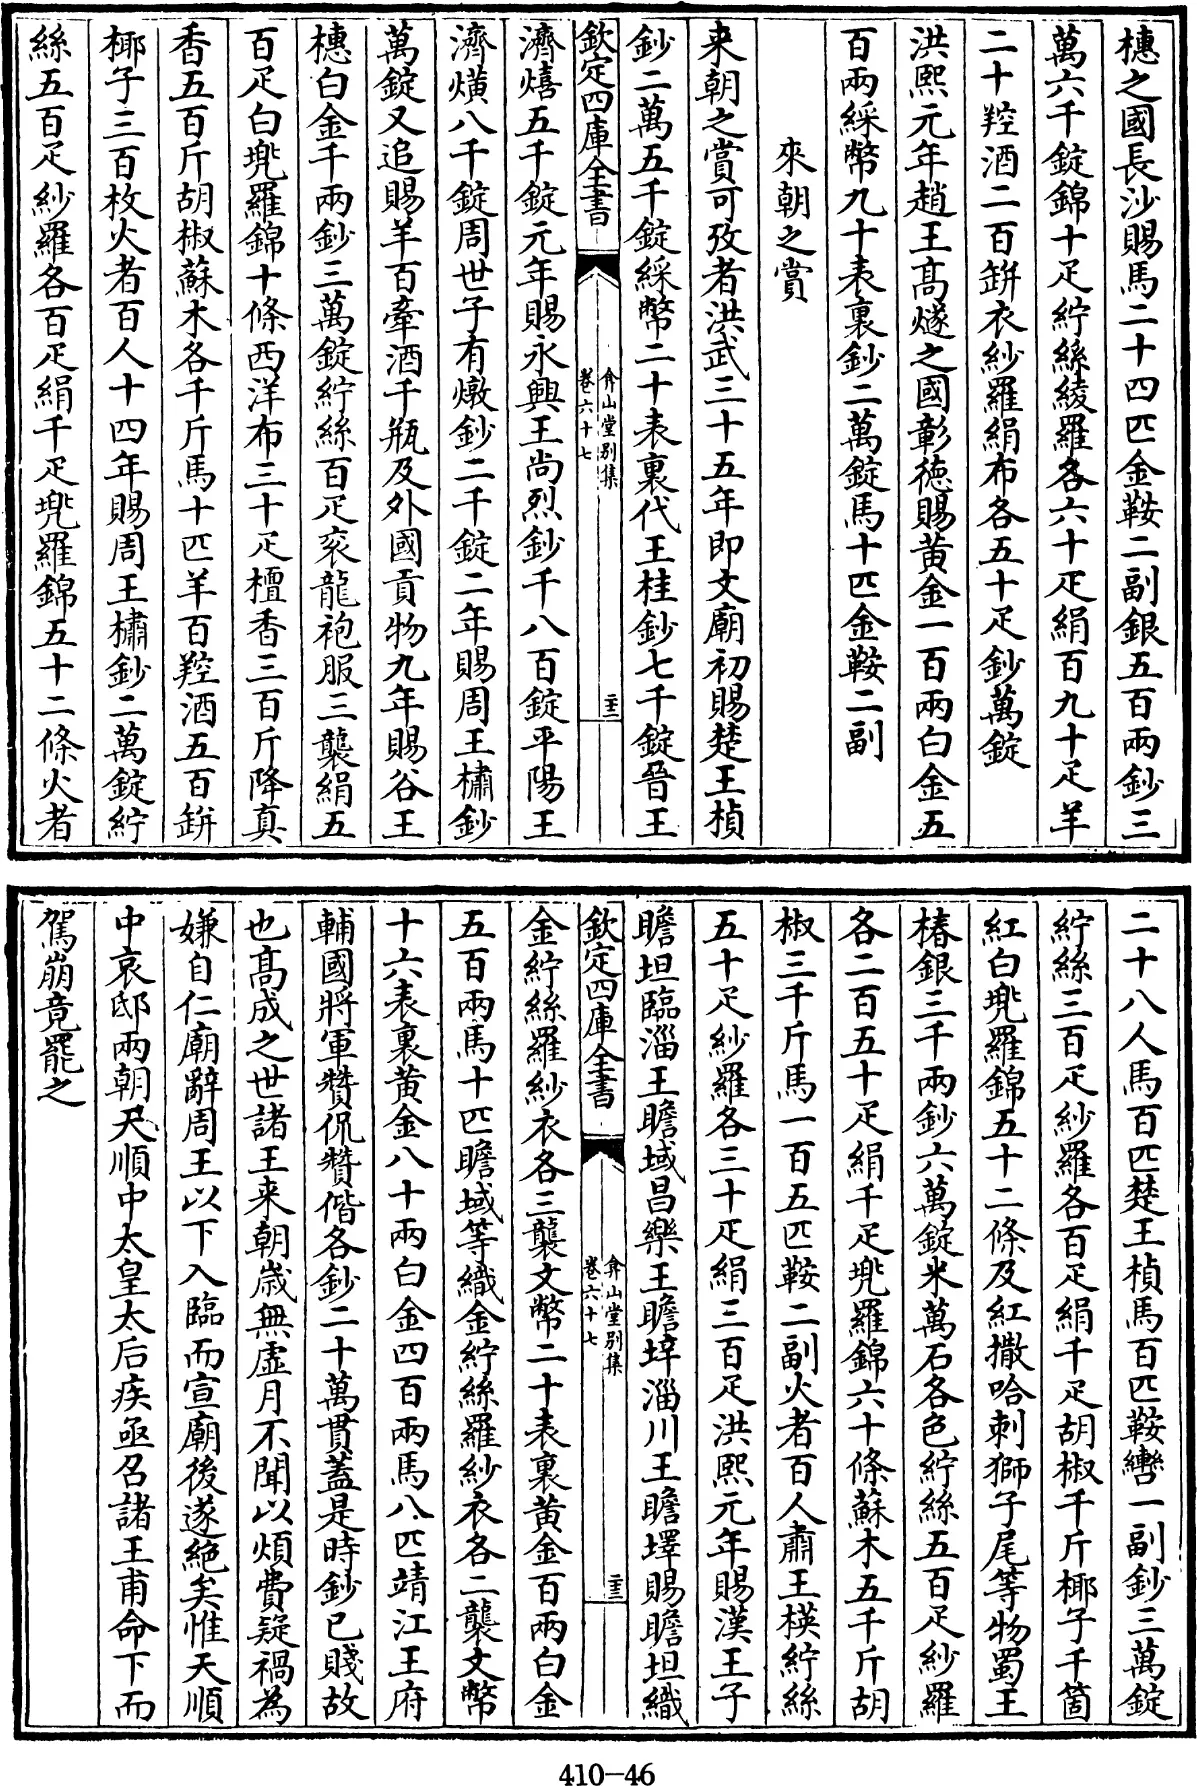 橞之國長沙賜馬二十四匹金鞍二副銀五百兩鈔三
萬六千錠錦十疋紵絲綾羅各六十疋絹百九十疋羊
二十羫酒二百缾衣紗羅絹布各五十疋鈔萬錠
洪熙元年趙王高燧之國彰徳賜黄金一百兩白金五
百兩綵幣九十表裏鈔二萬錠馬十匹金鞍二副
來朝之賞
来朝之賞可攷者洪武三十五年即文廟初賜楚王楨
鈔二萬五千錠綵幣二十表裏代王桂鈔七千錠晉王
欽定四庫全書
弇山堂别集
卷六十七
二十二
濟熺五千錠元年賜永興王尚烈鈔千八百錠平陽王
濟熿八千錠周世子有燉鈔二千錠二年賜周王橚鈔
萬錠又追賜羊百牽酒千瓶及外國貢物九年賜谷王
橞白金千兩鈔三萬錠紵絲百疋衮龍袍服三襲絹五
百疋白兠羅錦十條西洋布三十疋檀香三百斤降真
香五百斤胡椒蘇木各千斤馬十匹羊百羫酒五百缾
椰子三百枚火者百人十四年賜周王橚鈔二萬錠紵
絲五百疋紗羅各百疋絹千疋兠羅錦五十二條火者
二十八人馬百匹楚王楨馬百匹鞍轡一副鈔三萬錠
紵絲三百疋紗羅各百疋絹千疋胡椒千斤椰子千箇
紅白兠羅錦五十二條及紅撒哈刺獅子尾等物蜀王
椿銀三千兩鈔六萬錠米萬石各色紵絲五百疋紗羅
各二百五十疋絹千疋兠羅錦六十條蘇木五千斤胡
椒三千斤馬一百五匹鞍二副火者百人肅王楧紵絲
五十疋紗羅各三十疋絹三百疋洪熙元年賜漢王子
瞻坦臨淄王瞻域昌樂王瞻垶淄川王瞻墿賜瞻坦織
欽定四庫全書
弇山堂别集
卷六十七
二十三
金紵絲羅紗衣各三襲文幣二十表裏黄金百兩白金
五百兩馬十匹瞻域等織金紵絲羅紗衣各二襲文幣
十六表裏黄金八十兩白金四百兩馬八匹靖江王府
輔國將軍贊侃贊偕各鈔二十萬貫蓋是時鈔已賤故
也髙成之世諸王来朝歲無虚月不聞以煩費疑禍為
嫌自仁廟辭周王以下入臨而宣廟後遂絶矣惟天順
中哀邸兩朝天順中太皇太后疾亟召諸王甫命下而
駕崩竟罷之
410-46